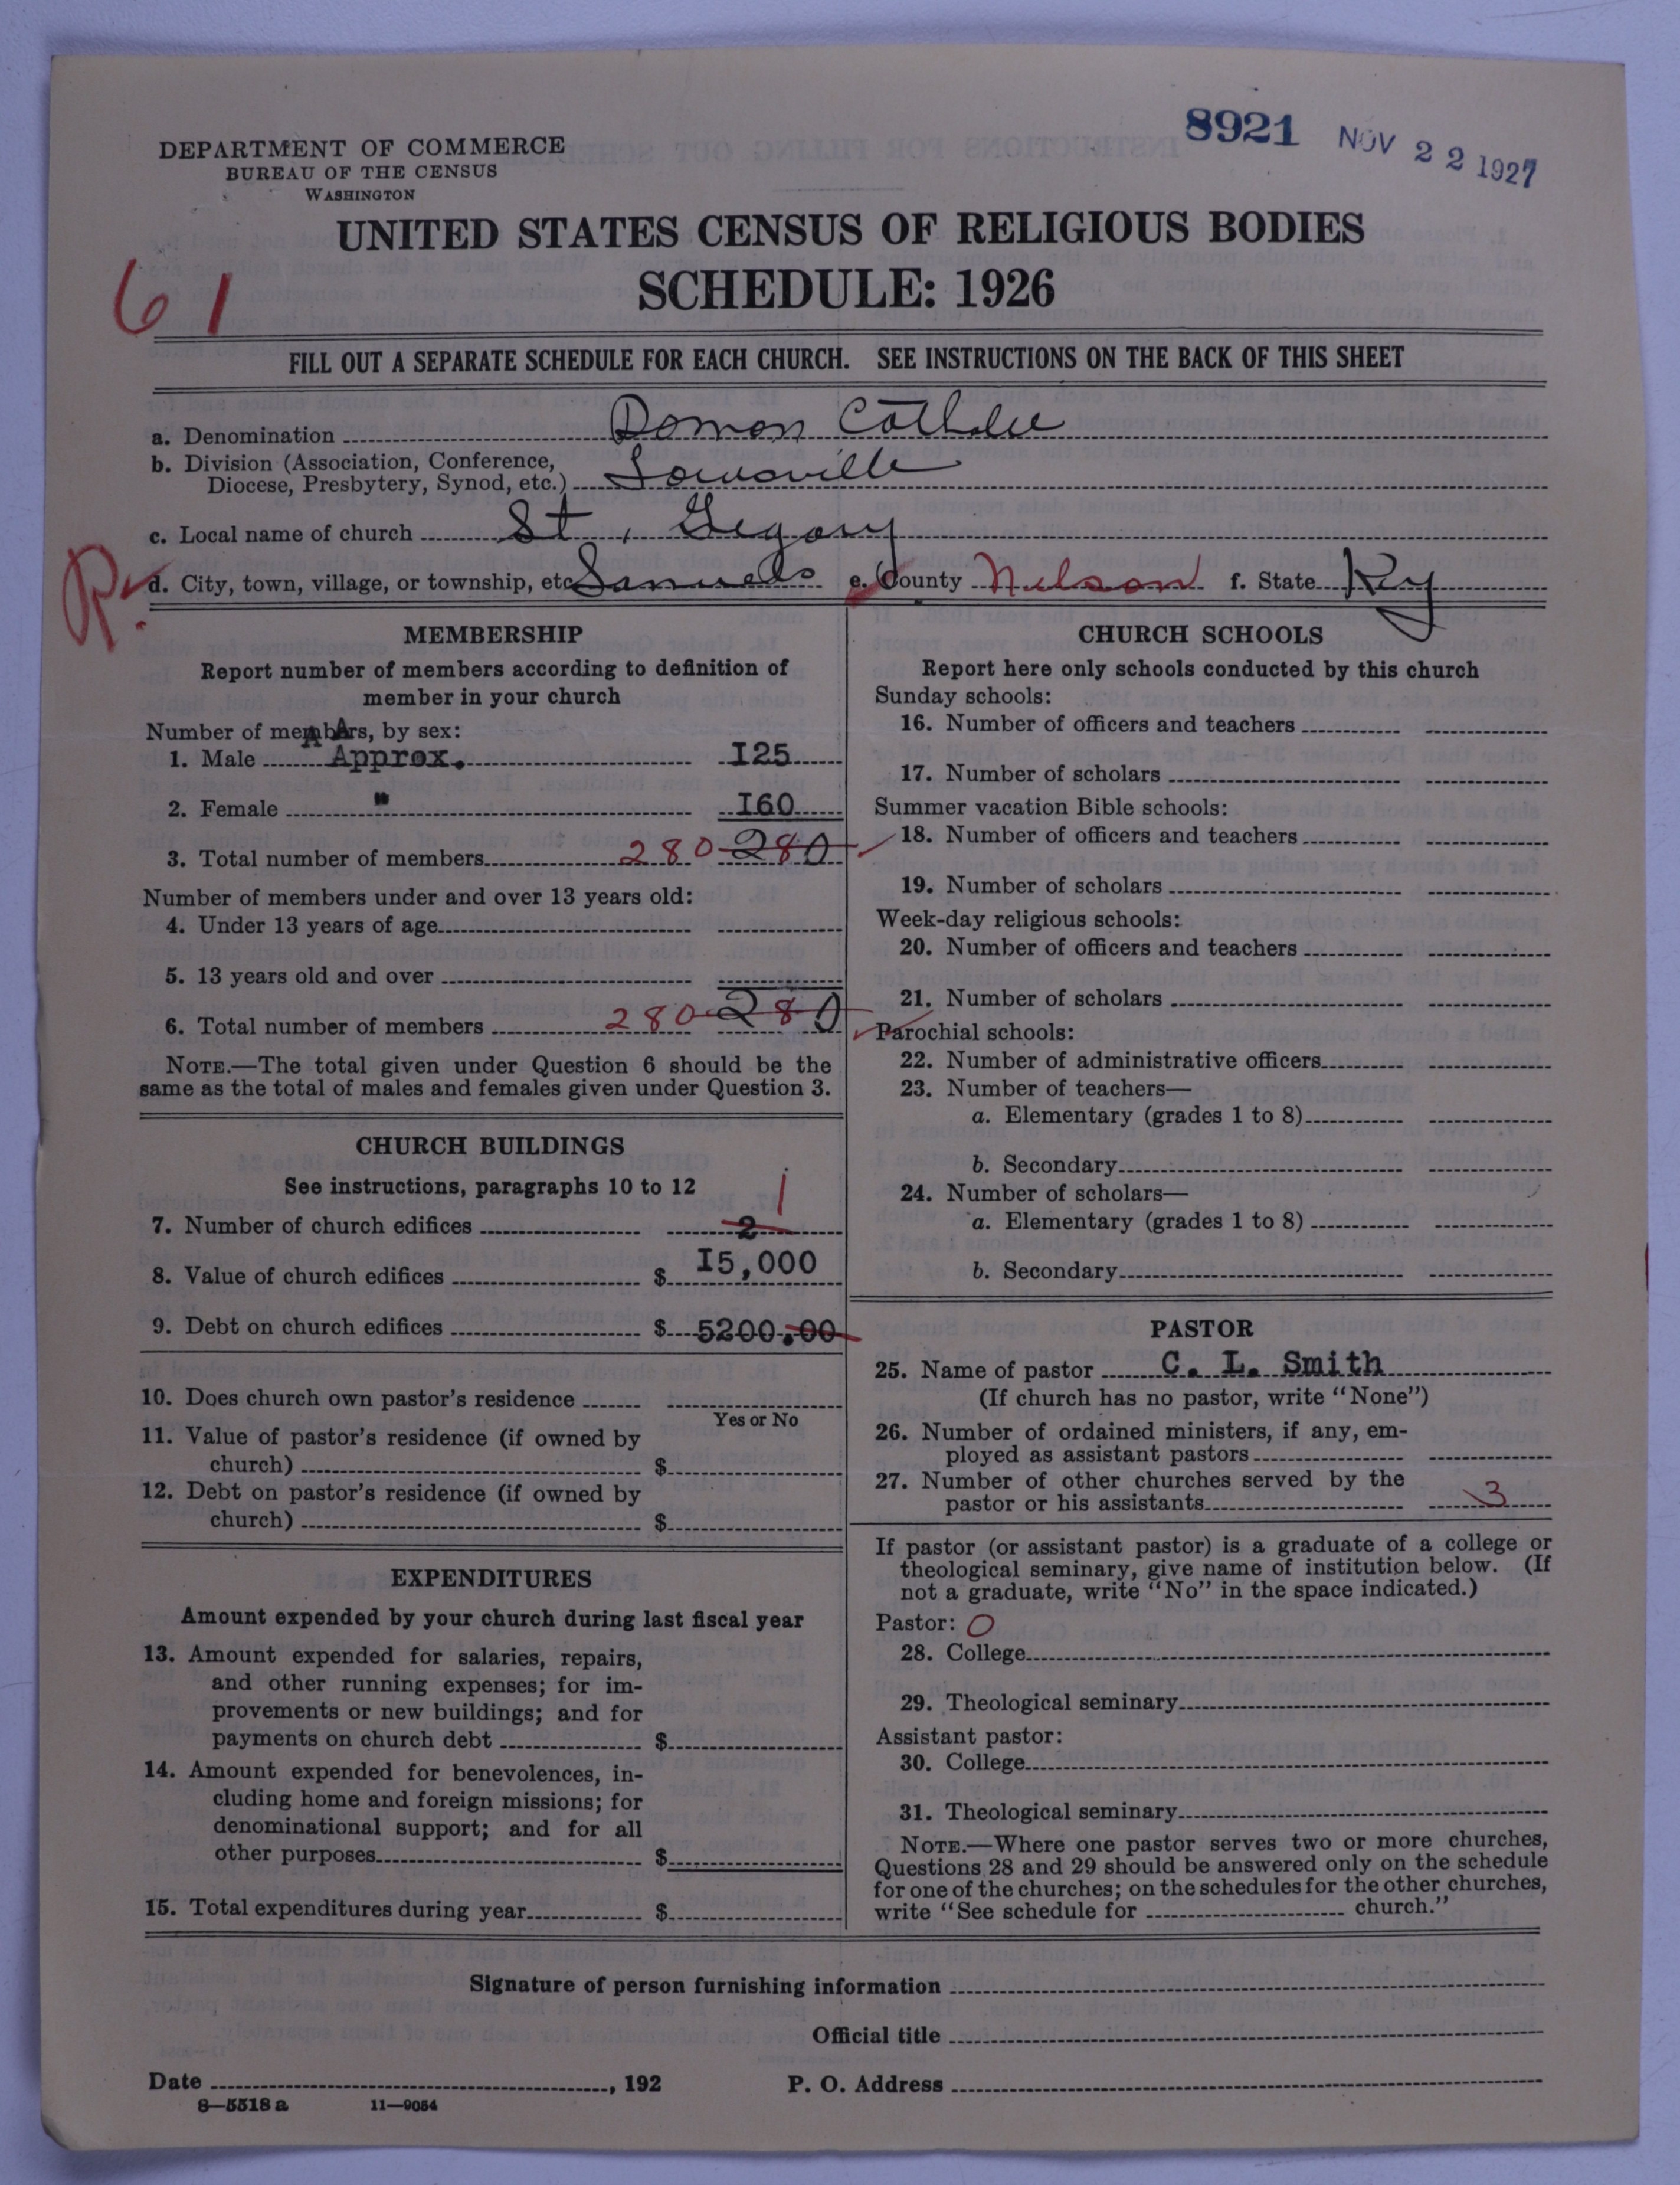 8921 NOV 22 1927
DEPARTMENT OF COMMERCE
BUREAU OF THE CENSUS
WASHINGTON
UNITED STATES CENSUS OF RELIGIOUS BODIES
SCHEDULE: 1926
61
FILL OUT A SEPARATE SCHEDULE FOR EACH CHURCH. SEE INSTRUCTIONS ON THE BACK OF THIS SHEET
a. Denomination Roman Catholic
b. Division (Association, Conference,
Diocese, Presbytery, Synod, etc.) Louisville
c. Local name of church St. Gegory
R. d. City, town, village, or township, etc Samuels e. County Nelson f. State Ky
MEMBERSHIP
Report number of members according to definition of
member in your church
Number of members, by sex:
1. Male Approx. I25
2. Female " I60
3. Total number of members 280 280
Number of members under and over 13 years old:
4. Under 13 years of age
5. 13 years old and over
6. Total number of members 280 280
NOTE.—The total given under Question 6 should be the
same as the total of males and females given under Question 3.
CHURCH BUILDINGS
See instructions, paragraphs 10 to 12
7. Number of church edifices 2 1
8. Value of church edifices $ I5,000
9. Debt on church edifices $ 5200.00
10. Does church own pastor's residence
Yes or No
11. Value of pastor's residence (if owned by
church) $
12. Debt on pastor's residence (if owned by
church) $
EXPENDITURES
Amount expended by your church during last fiscal year
13. Amount expended for salaries, repairs,
and other running expenses; for im-
provements or new buildings; and for
payments on church debt $
14. Amount expended for benevolences, in-
cluding home and foreign missions; for
denominational support; and for all
other purposes $
15. Total expenditures during year $
CHURCH SCHOOLS
Report here only schools conducted by this church
Sunday schools:
16. Number of officers and teachers
17. Number of scholars
Summer vacation Bible schools:
18. Number of officers and teachers
19. Number of scholars
Week-day religious schools:
20. Number of officers and teachers
21. Number of scholars
Parochial schools:
22. Number of administrative officers
23. Number of teachers—
a. Elementary (grades 1 to 8)
b. Secondary
24. Number of scholars—
a. Elementary (grades 1 to 8)
b. Secondary
PASTOR
25. Name of pastor C. L. Smith
(If church has no pastor, write "None")
26. Number of ordained ministers, if any, em-
ployed as assistant pastors
27. Number of other churches served by the
pastor or his assistants 3
If pastor (or assistant pastor) is a graduate of a college or
theological seminary, give name of institution below. (If
not a graduate, write "No" in the space indicated.)
Pastor: O
28. College
29. Theological seminary
Assistant pastor:
30. College
31. Theological seminary
NOTE.—Where one pastor serves two or more churches,
Questions 28 and 29 should be answered only on the schedule
for one of the churches; on the schedules for the other churches,
write "See schedule for church."
Signature of person furnishing information
Official title
Date , 192 P. O. Address
8—5518 a 11—9054